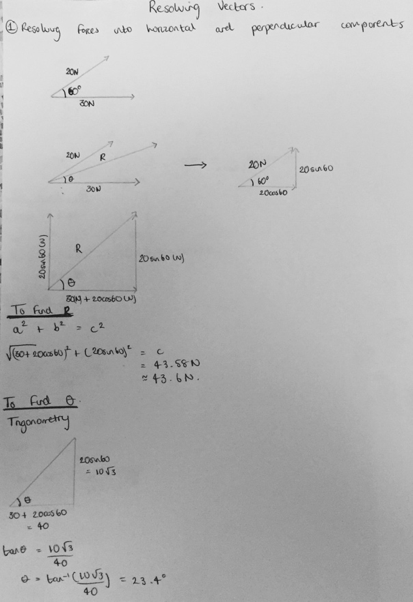 Resolving Vectors.
① Resolving forces into horizontal and perpendicular components
20N
60°
30N
20N
R
θ
30N
→
20N
60°
20sin60
20cos60
20sin60(N)
R
20sin60(N)
θ
30(N) + 20cos60(N)
To Find R
a² + b² = c²
√(30+20cos60)² + (20sin60)² = c
= 43.58N
≈ 43.6N.
To Find θ
Trigonometry
20sin60
= 10√3
θ
30 + 20cos60
= 40
tanθ = 10√3/40
θ = tan⁻¹(10√3/40) = 23.4°